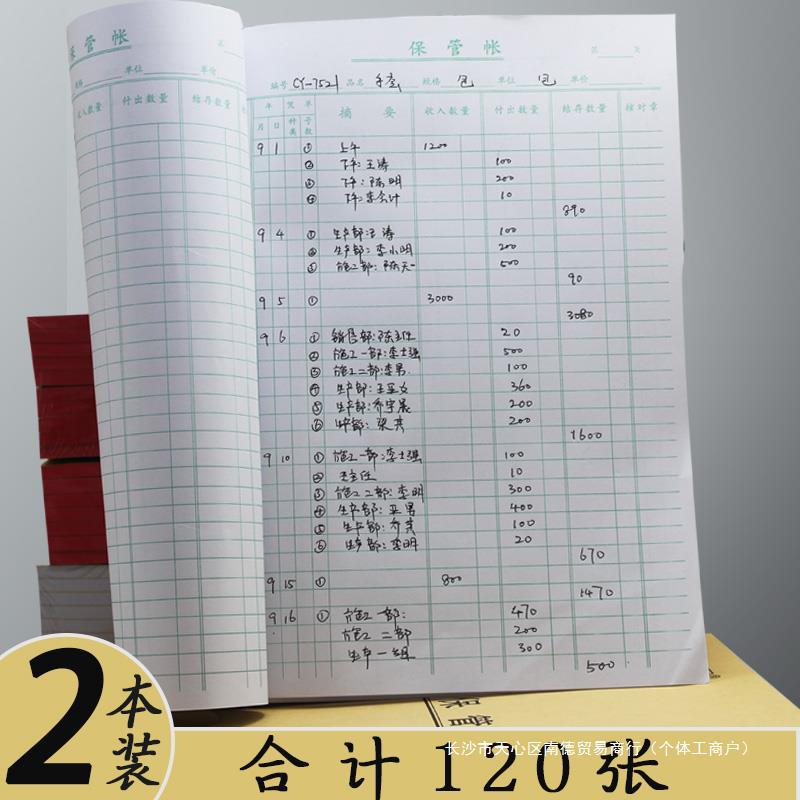 保管帐
第
单位 单价
收入数量 付出数量 结存数量
保管帐
第 页
编号 CY-7521 品名 手套 规格 包 单位 包 单价
年 凭单 摘要 收入数量 付出数量 结存数量 核对章
月 日 种类 子数
9 1 ① 上午 1200
② 下午:王涛 100
③ 下午:陈明 200
④ 下午:李会计 10
890
9 4 ① 生产部:王涛 100
② 生产部:李小明 200
③ 施工部:陈天一 500
90
9 5 ① 3000
3080
9 6 ① 销售部:陈主任 20
② 施工一部:李士强 500
③ 施工二部:李男 100
④ 生产部: 360
⑤ 生产部:乔宇晨 200
⑥ 生产部:梁其 200
1600
9 10 ① 施工一部:李士强 100
② 王主任 10
③ 施工二部:李明 300
④ 生产部:男 400
⑤ 生产部:乔其 100
⑥ 生产部:李明 20
670
9 15 ① 800
1470
9 16 ① 施工一部: 470
施工二部 200
生产一组 300
500
保管
长沙市天心区南德贸易商行(个体工商户)
2本装
合计120张